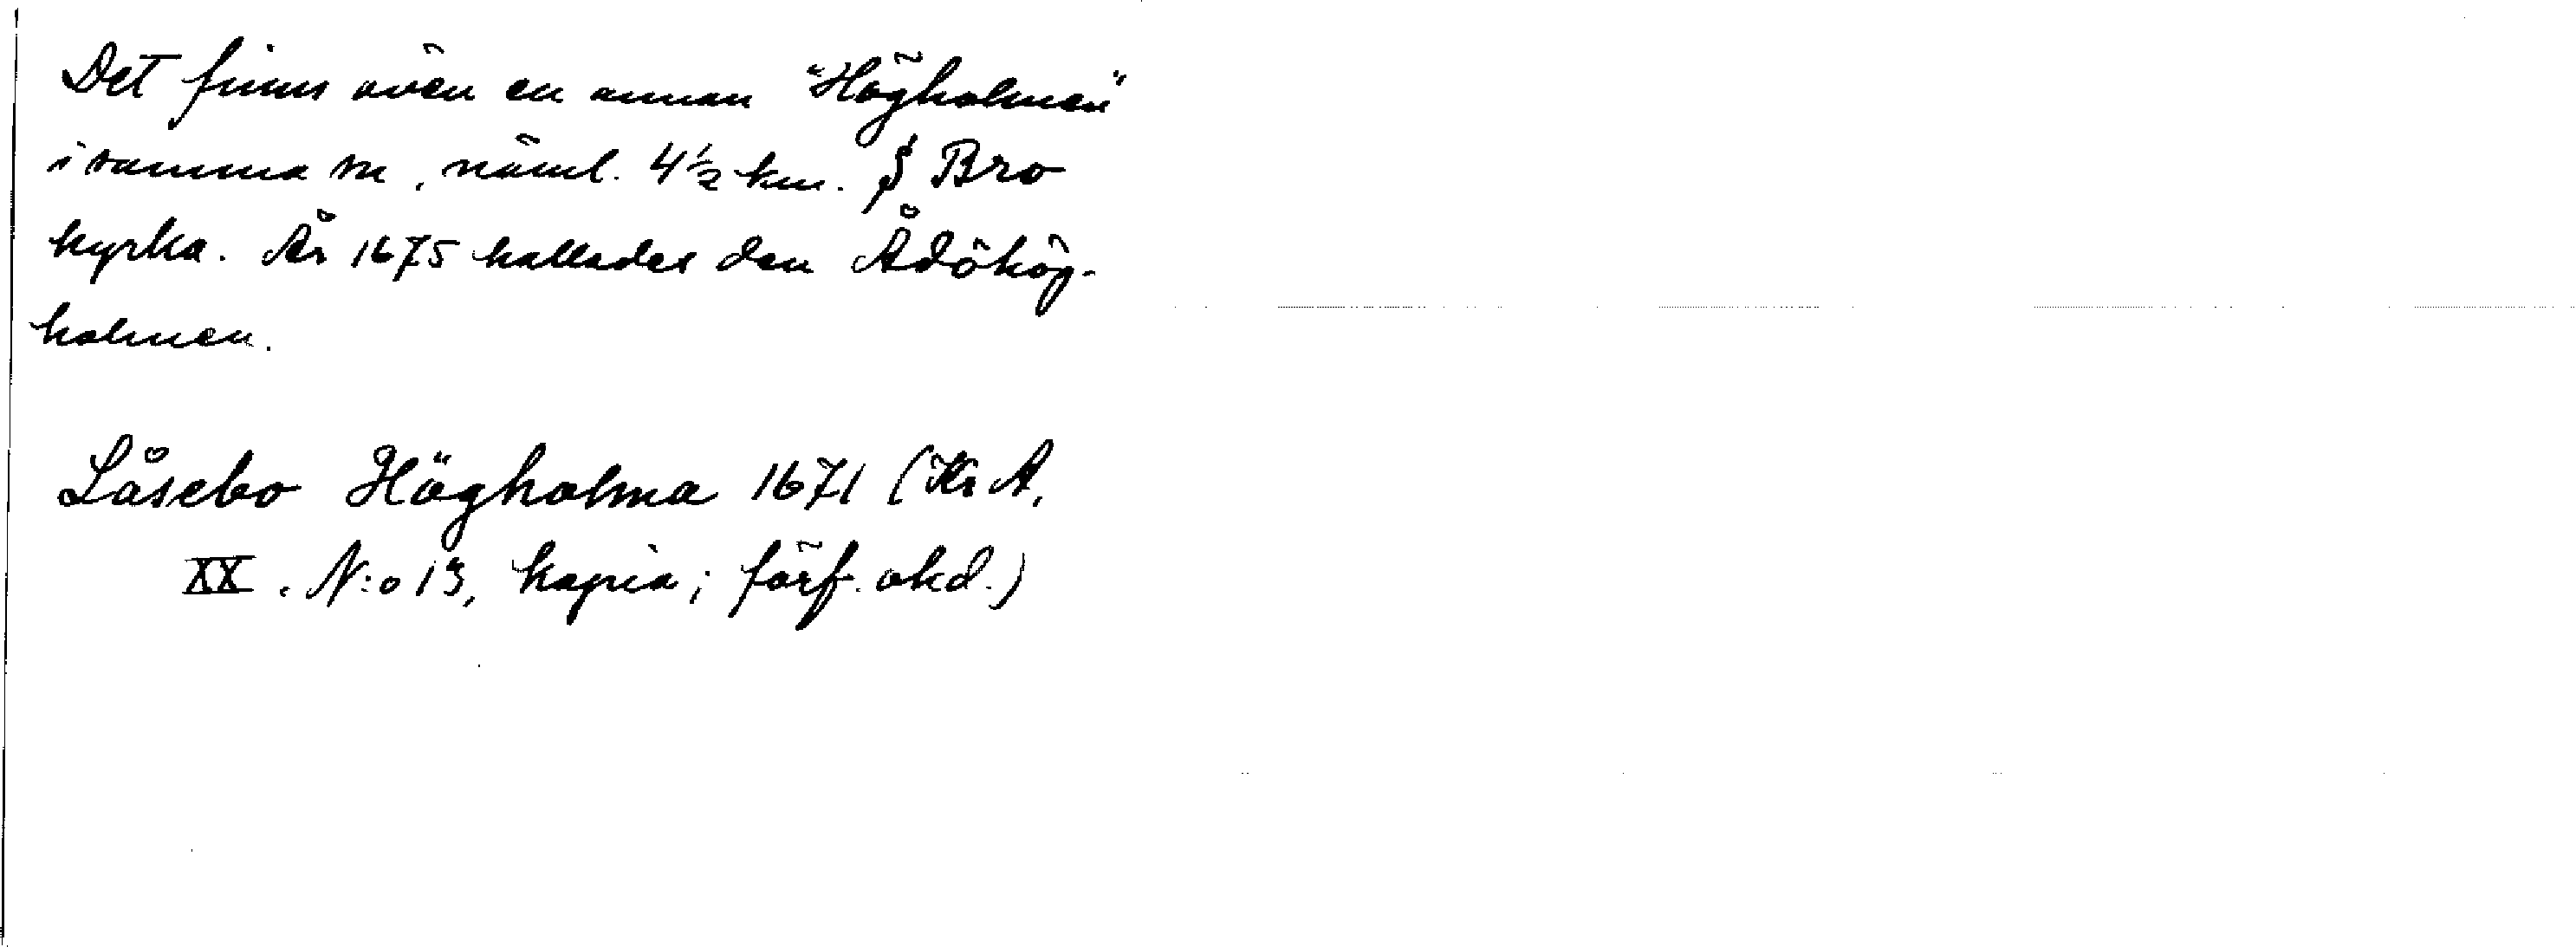 Det finns även en annan "Högholmen"
i samma sn, näml. 4½ km. S Bro
kyrka. År 1675 kallades den Ådöhög-
holmen.
Låsebo Högholma 1671 (Kr A,
XX. N:o 13, kopia; förf. okd.)